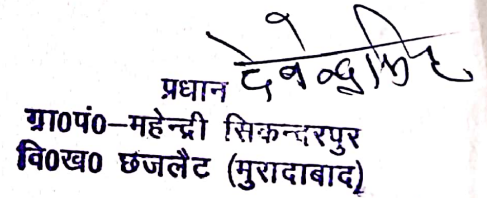 प्रधान
ग्रा०पं०-महेन्द्री सिकन्दरपुर
वि०ख० छजलैट (मुरादाबाद)